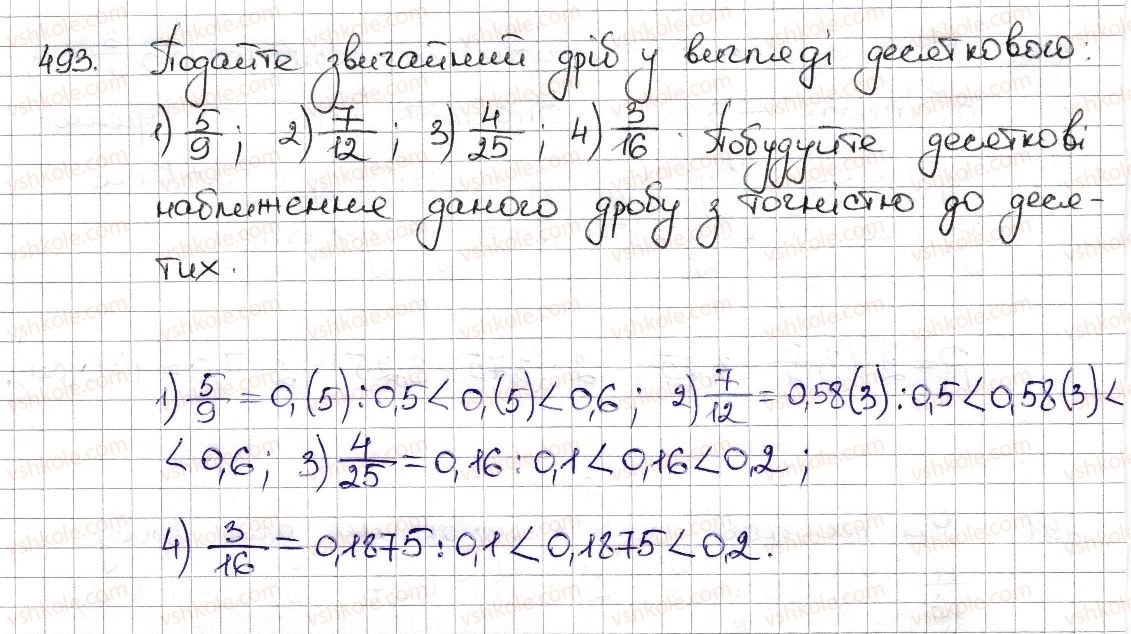 493. Подайте звичайний дріб у вигляді десяткового:
1) 5/9; 2) 7/12; 3) 4/25; 4) 3/16. Побудуйте десяткові
наближення даного дробу з точністю до деся-
тих.
1) 5/9 = 0,(5) : 0,5 < 0,(5) < 0,6; 2) 7/12 = 0,58(3) : 0,5 < 0,58(3) <
< 0,6; 3) 4/25 = 0,16 : 0,1 < 0,16 < 0,2;
4) 3/16 = 0,1875 : 0,1 < 0,1875 < 0,2.
vshkole.com